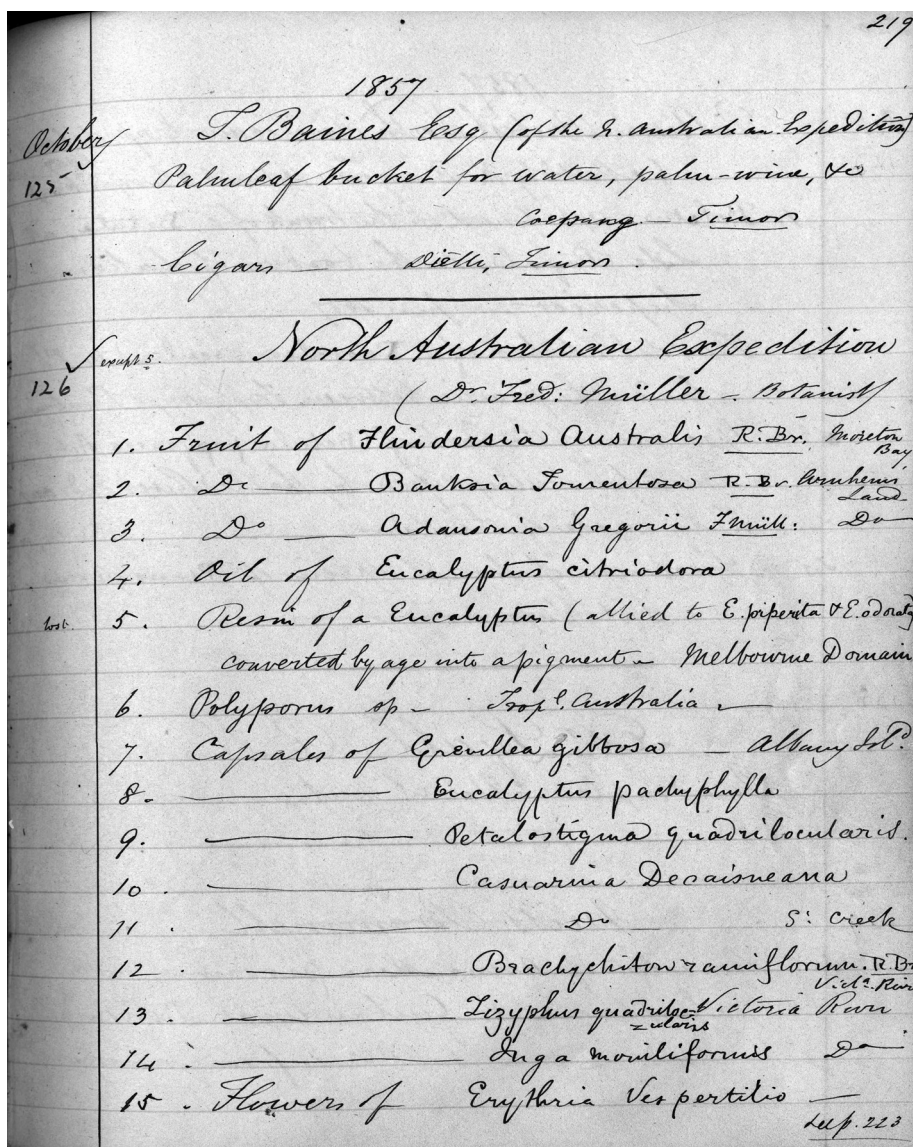 219
1857
October T. Baines Esq (of the N. Australian Expedition)
125 Palmleaf bucket for water, palm-wine, &c
Coepang - Timor
Cigars — Dielli, Timor.
North Australian Expedition
126 except 5. (Dr. Fred: Müller - Botanist)
1. Fruit of Flindersia Australis R. Br. Moreton Bay
2. Do — Banksia Tomentosa R. Br. Arnhems Land
3. Do — Adansonia Gregorii F Müll: Do
4. Oil of Eucalyptus citriodora
lost. 5. Resin of a Eucalyptus (allied to E. piperita & E. odorata)
converted by age into a pigment - Melbourne Domain
6. Polyporus sp - Tropl. Australia -
7. Capsules of Grevillea gibbosa - Albany Isld.
8. — Eucalyptus pachyphylla
9. — Petalostigma quadrilocularis.
10. — Casuarina Decaisneana
11. — Do S: Creek
12. — Brachychiton ramiflorum. R. Br Victa. River
13. — Zizyphus quadrilocularis Victoria River
14. — Inga moniliformis Do
15. Flowers of Erythria Vespertilio —
See p. 223